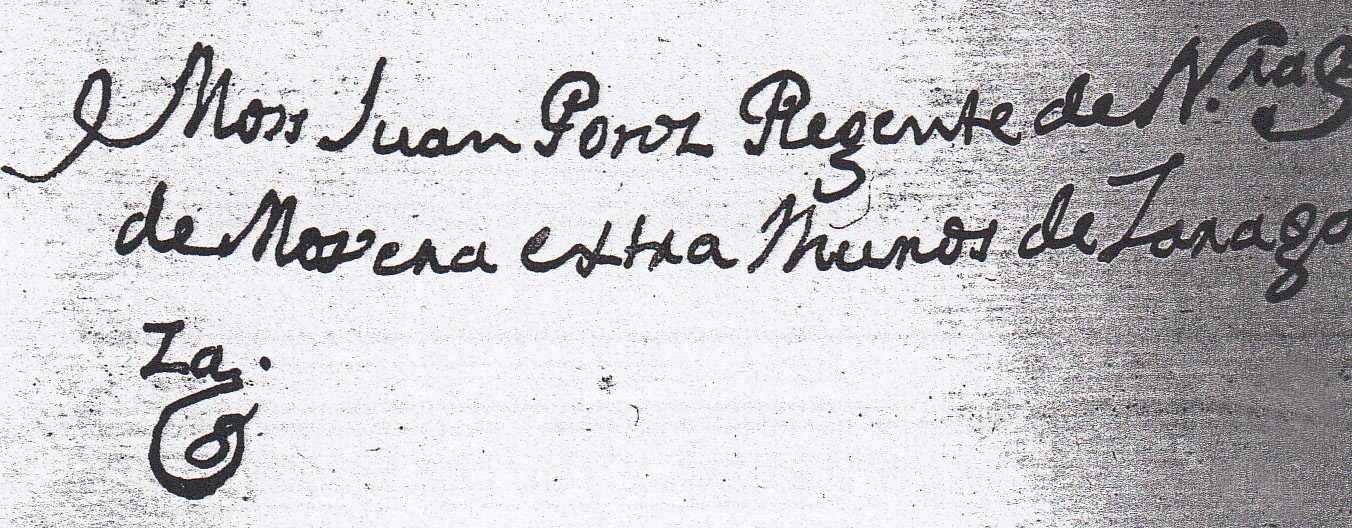 Moss Juan Perez Regente de N.ra S.a
de Movera extra Muros de Zarago
za.